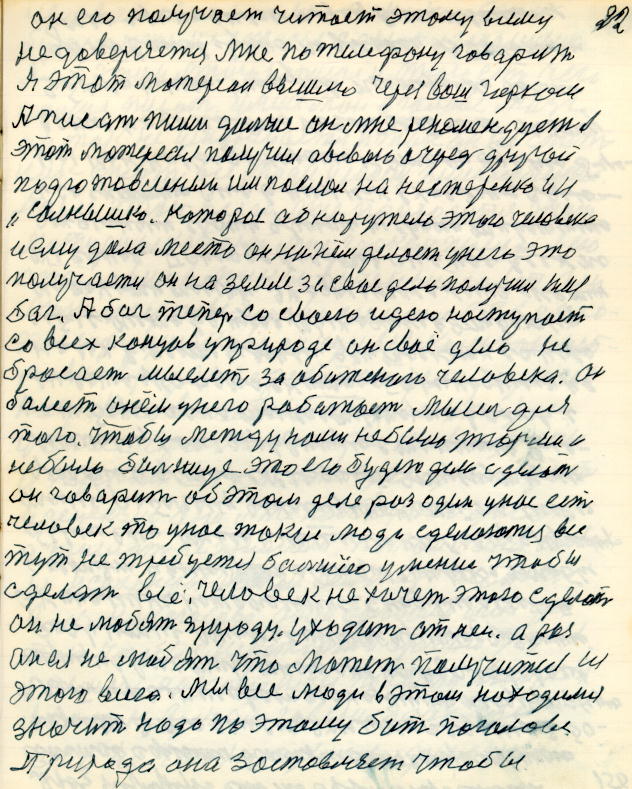 22
он его получает читает этому всему
не доверяется мне по телефону говарит
я этот мотереал вышлю через ваш горком
А писат пиши дальше он мне рекомендует я
этот мотереал получил авсвою очередь другой
подготовленый им послол на нестеренко
"солнышко. Которое обнаружело этого человека
иему дала место он на нём делает у него это
получается он на земле за свае дело получил
бог. А бог тепер со своею идею наступает
со всех концов у природе он своё дело не
бросает мыслет за обиженого человека. Он
балеет онём у него работает мысл для
того. Чтобы между нами небыло тюрмы и
небыло болнице. Это его будет дело сделат
он говарит об этом деле раз один у нас ест
человек то у нас такие люди сделаются все
тут не требуется балшого умение чтобы
сделат всё. Человек не хочет этого сделат
он не любят природу уходит от неи. а раз
он ея не любят что может получится из
этого всего. Мы все люди в этом находимся
значит надо по этому бит поголове
Природа она заставляет чтобы